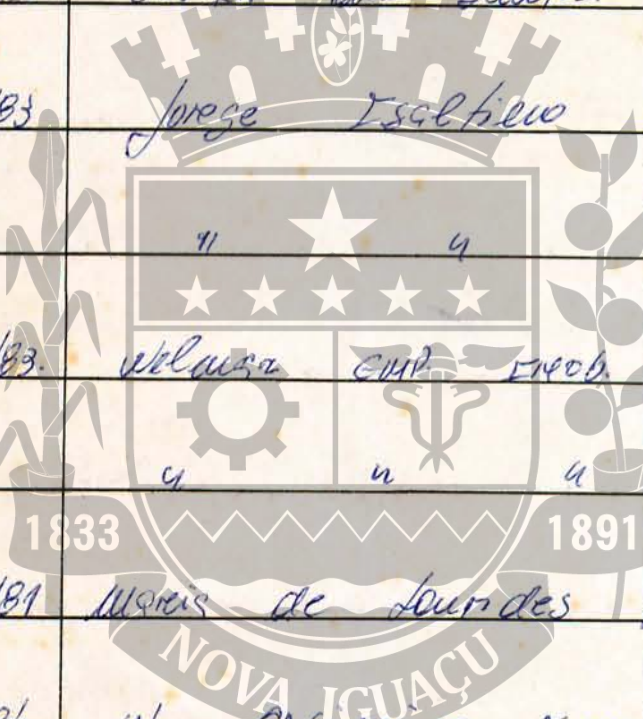 83 Jorge Isaltino
" "
/83. Wilmar EMP. IMOB.
" " "
1833 1891
/81 Maria de Lourdes
NOVA IGUAÇU